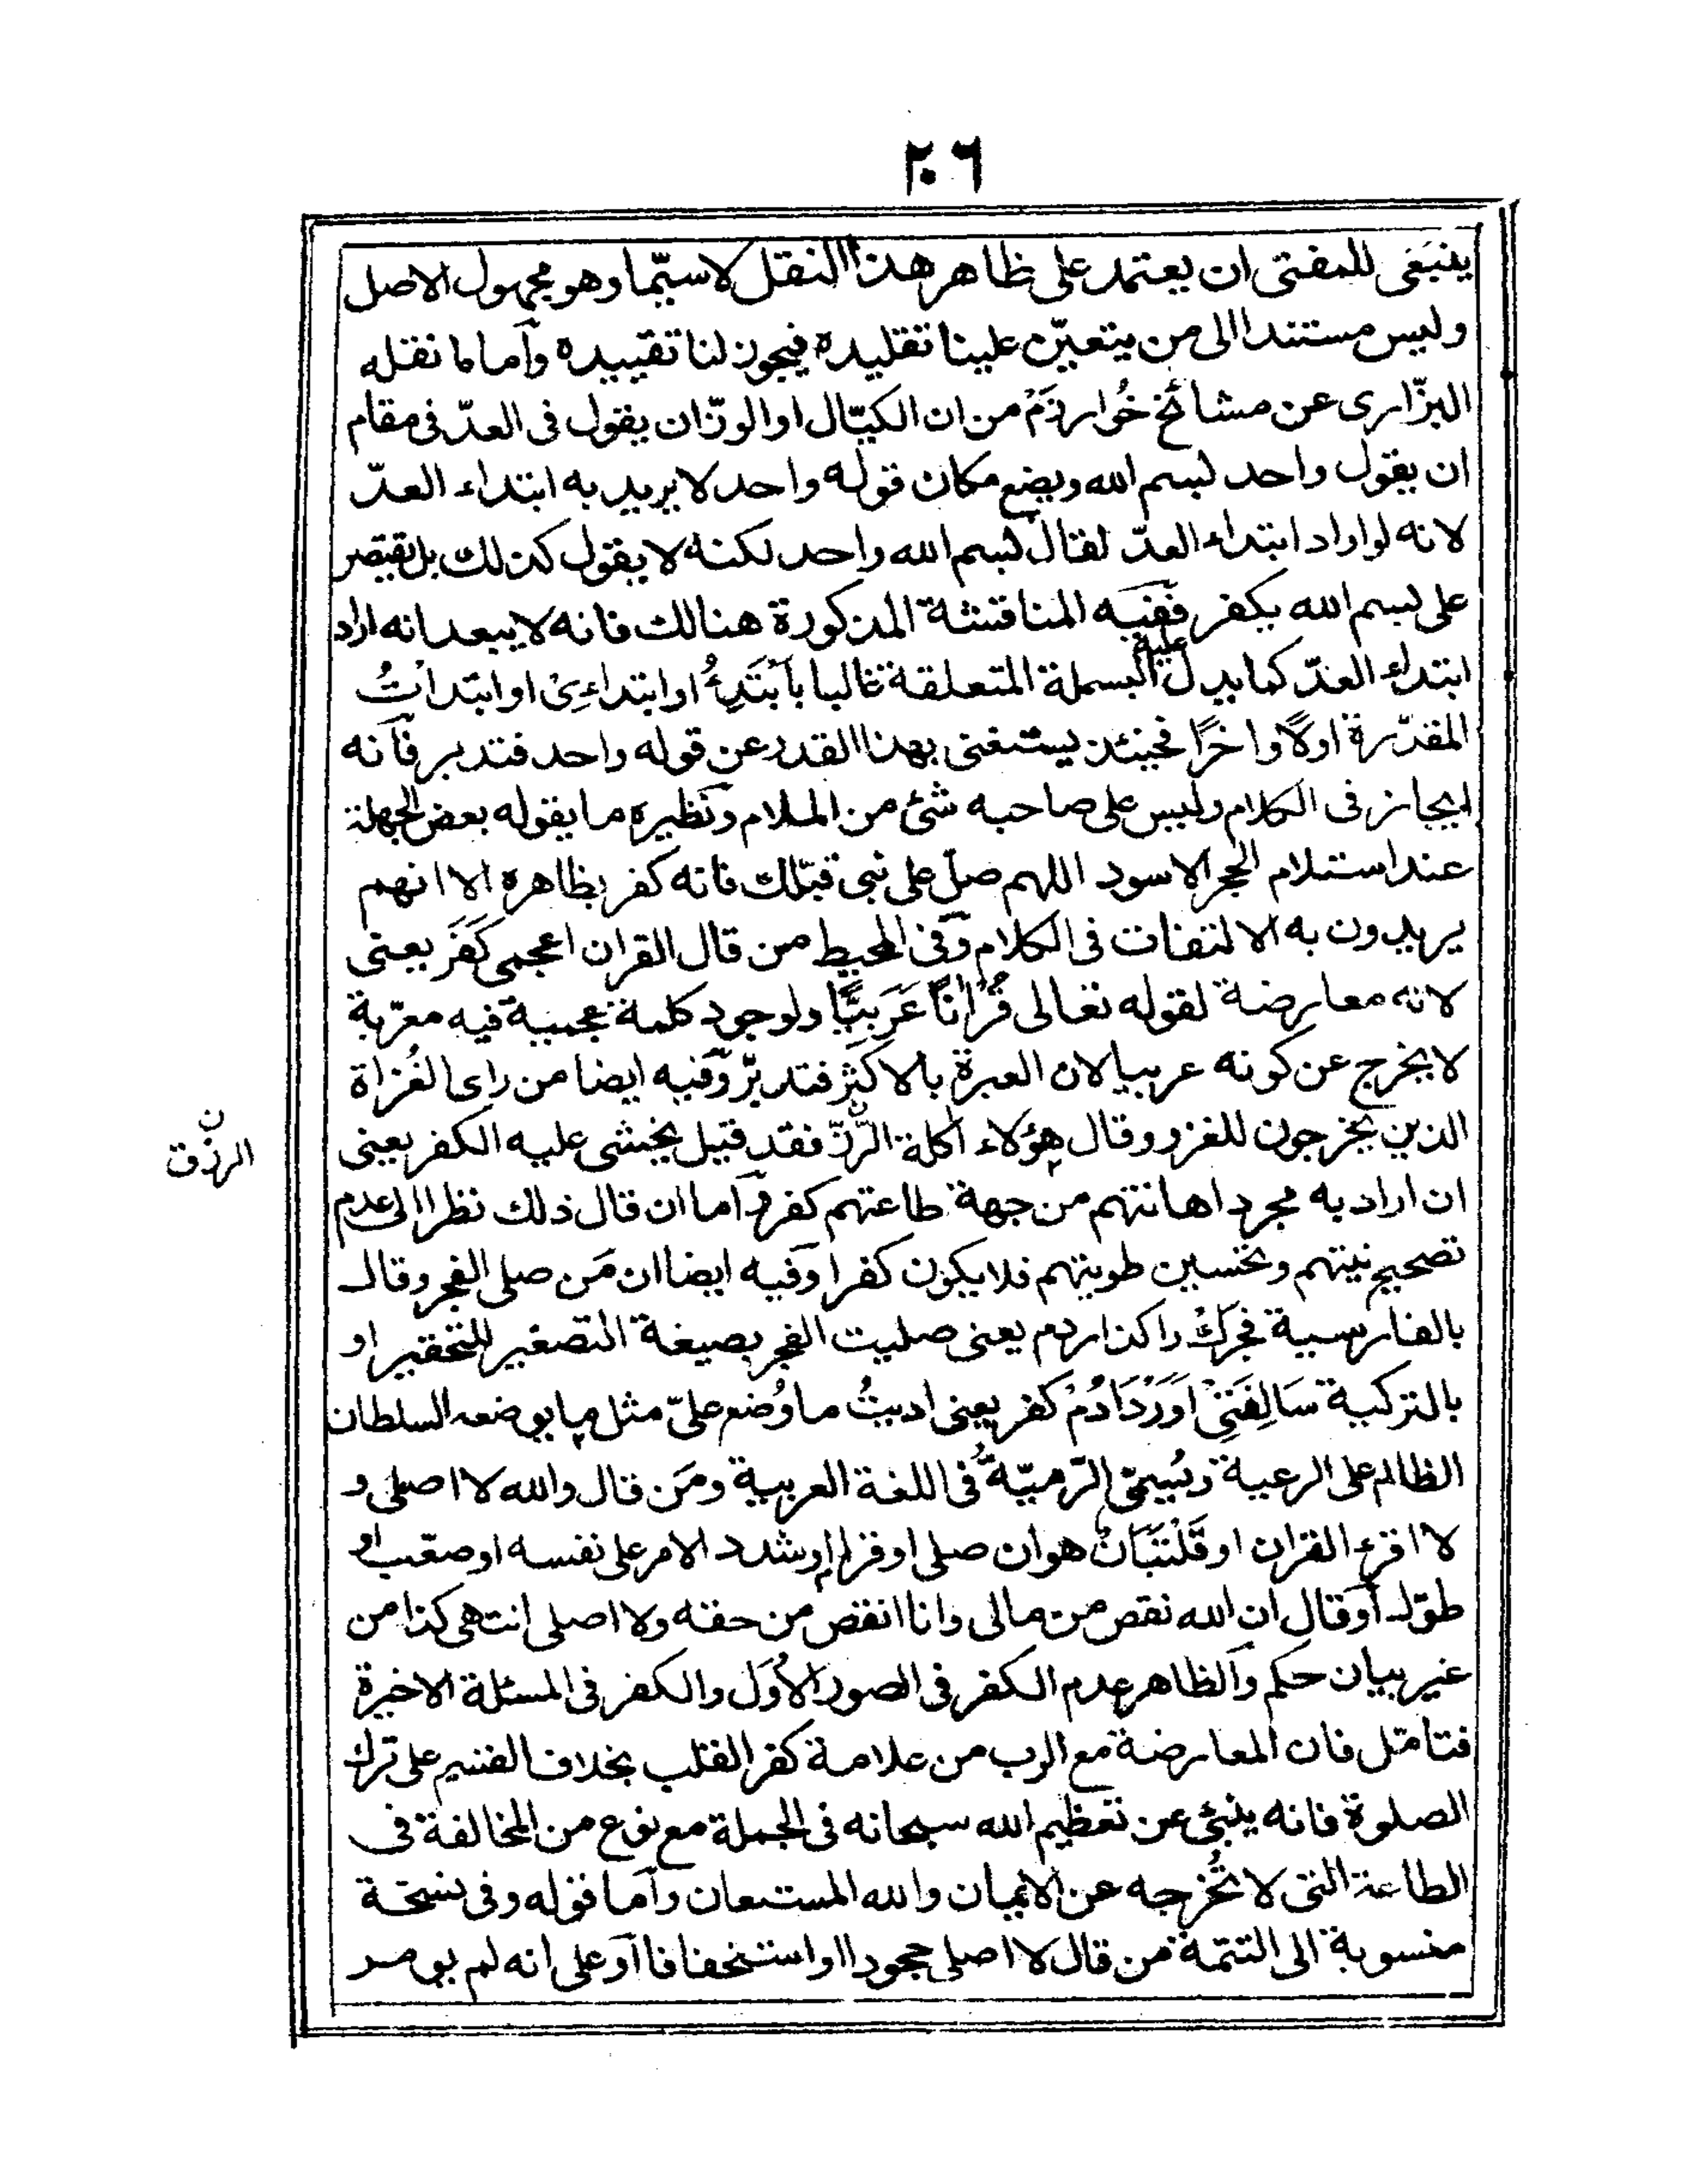 ٢٠٦
ينبغى للمفتى ان يعتمد على ظاهر هذا النقل لا سيّما وهو مجهول الاصل
وليس مستندا الى من يتعيّن علينا تقليده فيجوز لنا تقييده وآما ما نقله
البزّازى عن مشائخ خُوارزم من ان الكيّال او الوزّان يقول فى العدّ فى مقام
ان يقول واحد بسم الله ويضع مكان قوله واحد لا يريد به ابتداء العدّ
لانه لو اراد ابتداء العدّ لقال بسم الله واحد لكنه لا يقول كذلك بل يقتصر
على بسم الله يكفر ففيه المناقشة المذكورة هنالك فانه لا يبعد انه اراد
ابتداء العدّ كما يدل عليه البسملة المتعلقة غالبا بأبتدئُ او ابتداءِىْ او ابتدأتُ
المقدّرة اوّلا واخرًا فحينئذ يستغنى بهذا القدر عن قوله واحد فتدبر فآنه
ايجاز فى الكلام وليس على صاحبه شئ من الملام ونظيره ما يقوله بعض الجهلة
عند استلام الحجر الاسود اللهم صلّ على نبى قبّلك فانه كفر بظاهره الا انهم
يريدون به الالتفات فى الكلام وَفى المحيط من قال القران اعجمى كَفَرَ يعنى
لانه معارضة لقوله تعالى قُرْانًا عَرَبيًّا ولوجود كلمة عجمية فيه معرّبة
لا يخرج عن كونه عربيا لان العبرة بالاكثر فتدبّر وَفيه ايضا من راى الغُزاة
الذين يخرجون للغزو وقال هؤلاء اكلة الرُّزّ فقد قيل يخشى عليه الكفر يعنى
ن
الرزق
ان اراد به مجرد اهانتهم من جهة طاعتهم كفر وآما ان قال ذلك نظرا الى عدم
تصحيح نيتهم وتحسين طويتهم فلا يكون كفرا وَفيه ايضا ان مَن صلى الفجر وقال
بالفارسية فجرك را كذاردم يعنى صليت الفجر بصيغة التصغير للتحقير او
بالتركية سَالِغَنِىْ اَوَرْدَادُمْ كفر يعنى اديتُ ما وُضع علىّ مثل ما يوضعه السلطان
الظالم على الرعية وتُسمّى الرّميّة فى اللغة العربية ومَن قال والله لا اصلى و
لا اقرء القران او قَلْتَبَانْ هو ان صلى او قرأ او شدد الامر على نفسه او صعّب او
طوّل اَوقال ان الله نقص من مالى وانا انقص من حقه ولا اصلى انتهى كذا من
غير بيان حكم وَالظاهر عدم الكفر فى الصور الأُوَل والكفر فى المسئلة الاخيرة
فتامّل فان المعارضة مع الرب من علامة كفر القلب بخلاف القسم على ترك
الصلوة فانه ينبئ عن تعظيم الله سبحانه فى الجملة مع نوع من المخالفة فى
الطاعة التى لا تُخرجه عن الايمان والله المستعان وآما قوله وفى نسخة
منسوبة الى التتمّة من قال لا اصلى جحودا او استخفافا اَو على انه لم يومر